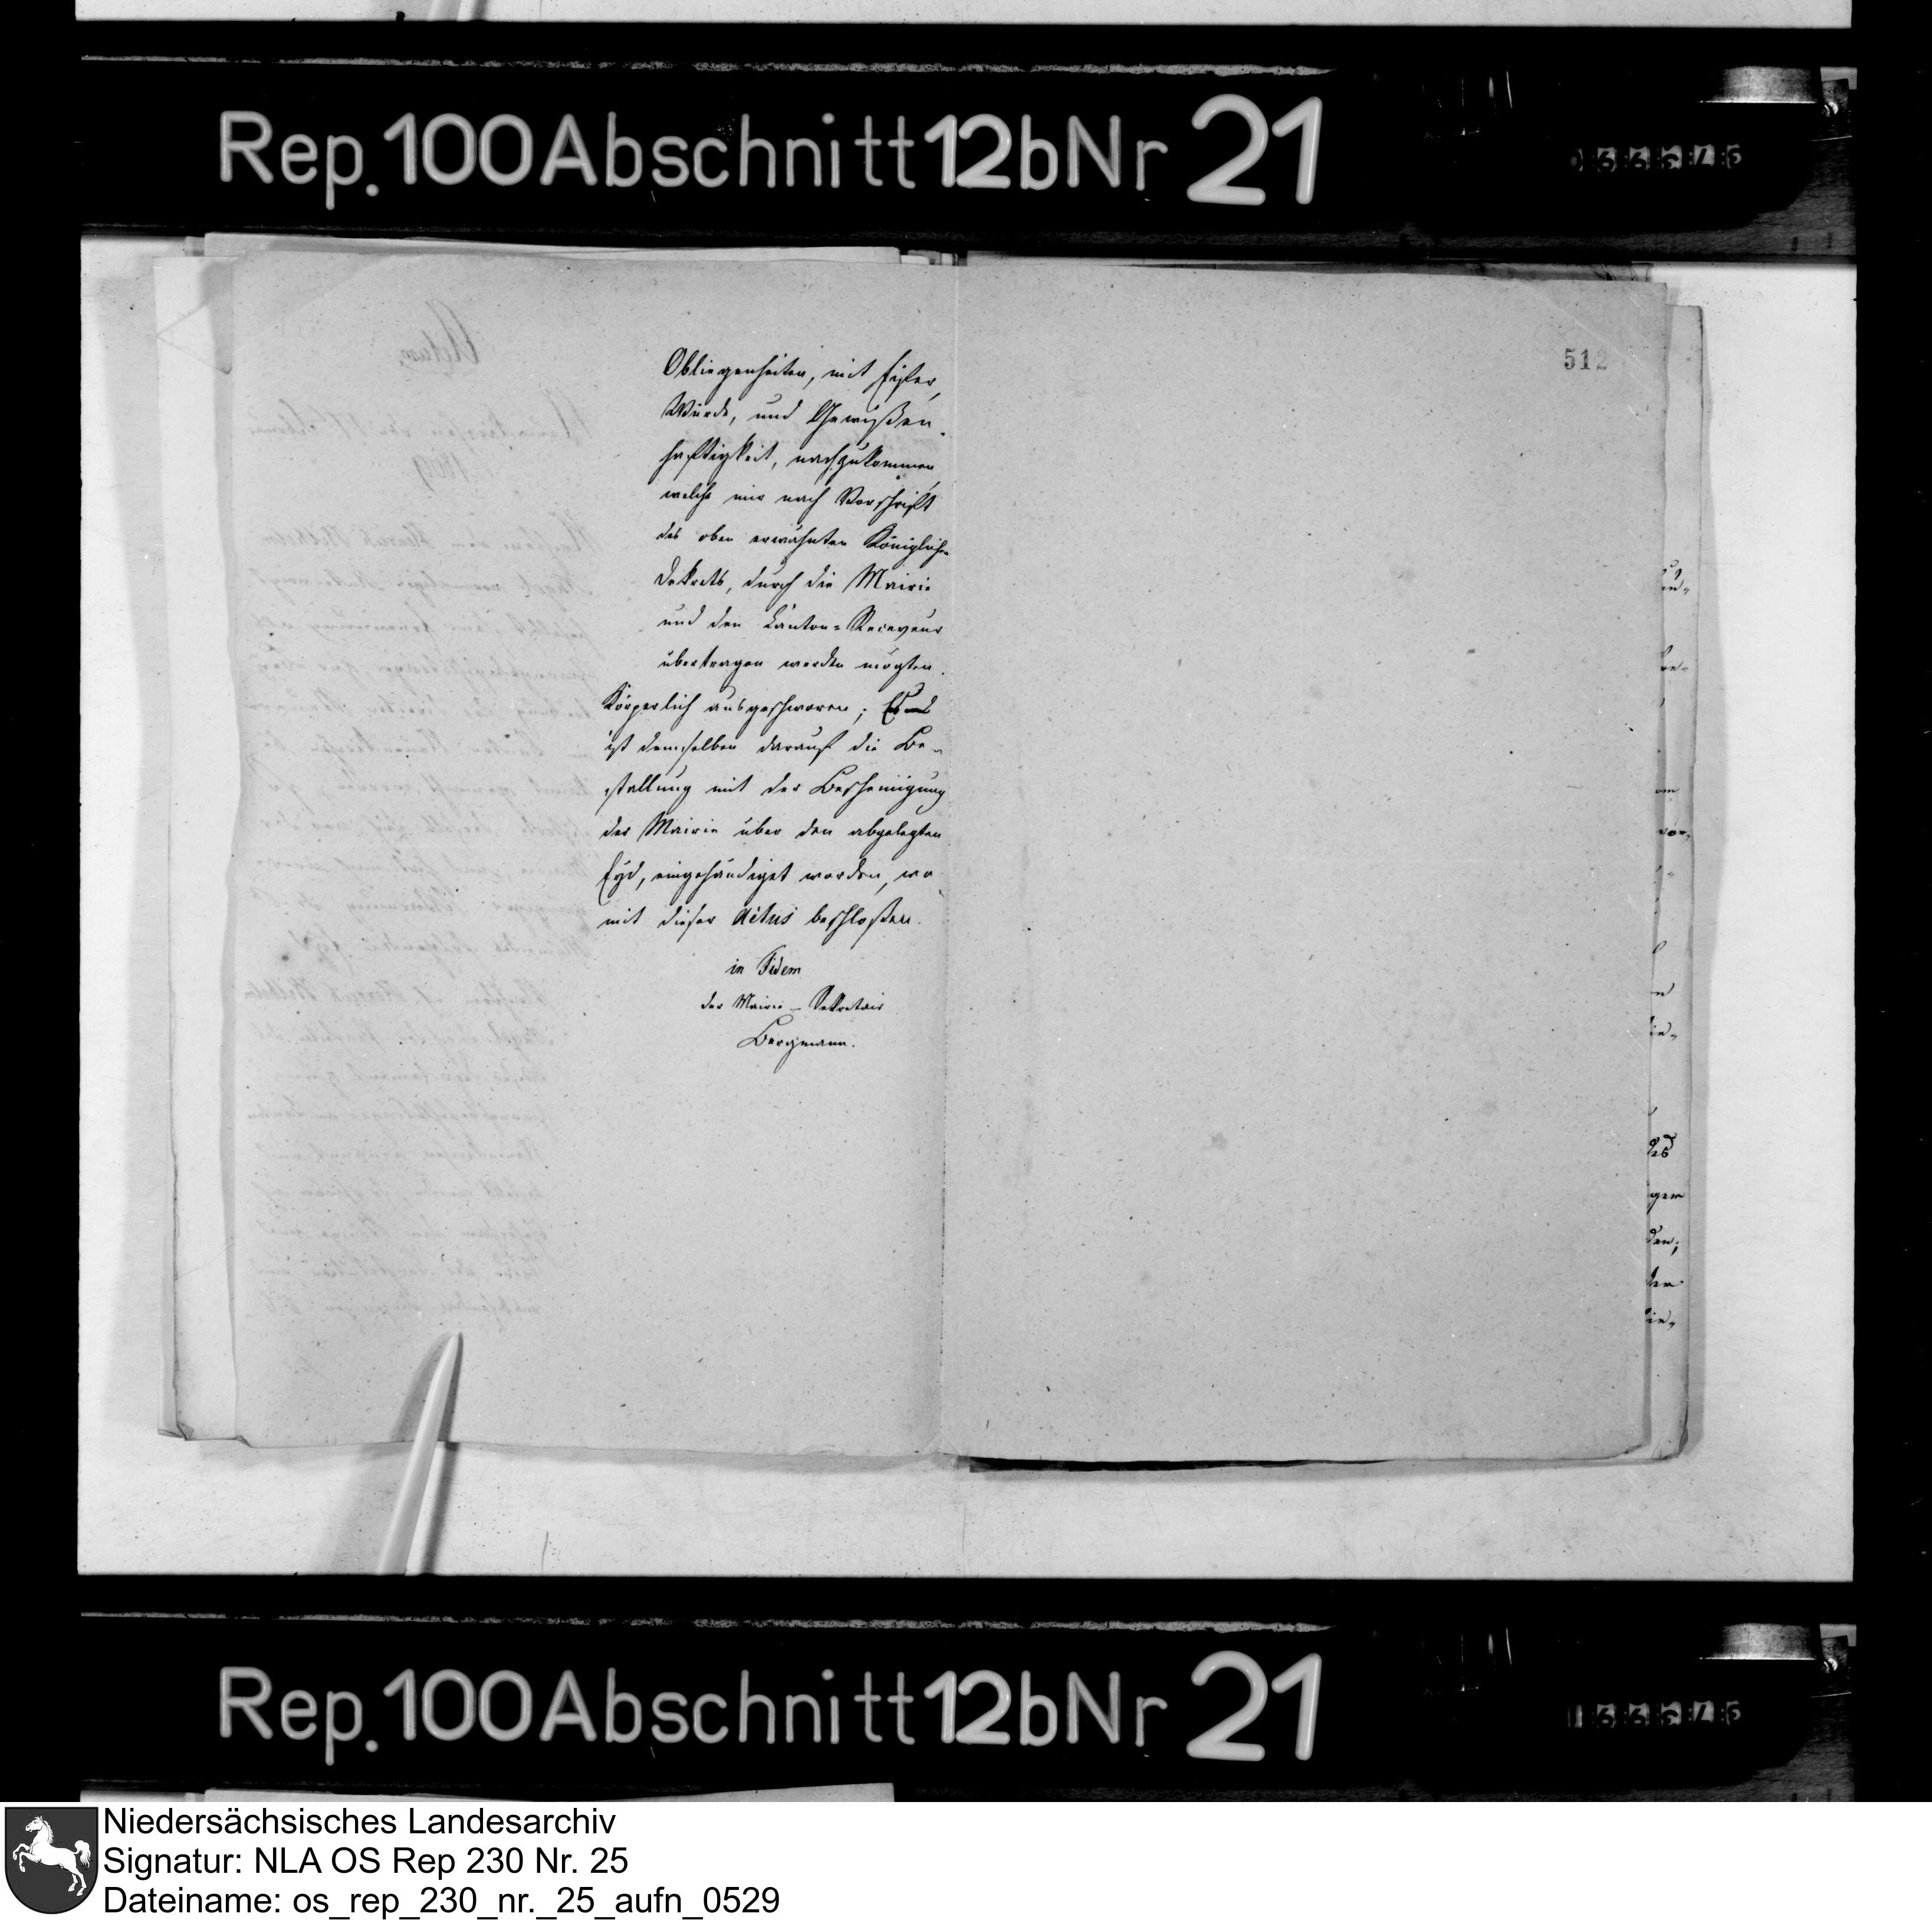 Rep. 100 Abschnitt 12b Nr 21
512
Obliegenheiten, mit Eifer,
Würde, und Gewißen-
haftigkeit, nachzukommen,
welche mir nach Vorschrift
des oben erwähnten Königlichen
Dekrets, durch die Mairie
und den Canton-Receveur
übertragen werden mögten.
Körperlich ausgeschworen;
ist demselben darauf die Be-
stallung mit der Bescheinigung
der Mairie über den abgelegten
Eyd, eingehändiget worden, wo-
mit dieser Actus beschloßen.
in Fidem
der Mairie-Sekretair
Bergmann.
Rep. 100 Abschnitt 12b Nr 21
Niedersächsisches Landesarchiv
Signatur: NLA OS Rep 230 Nr. 25
Dateiname: os_rep_230_nr._25_aufn_0529